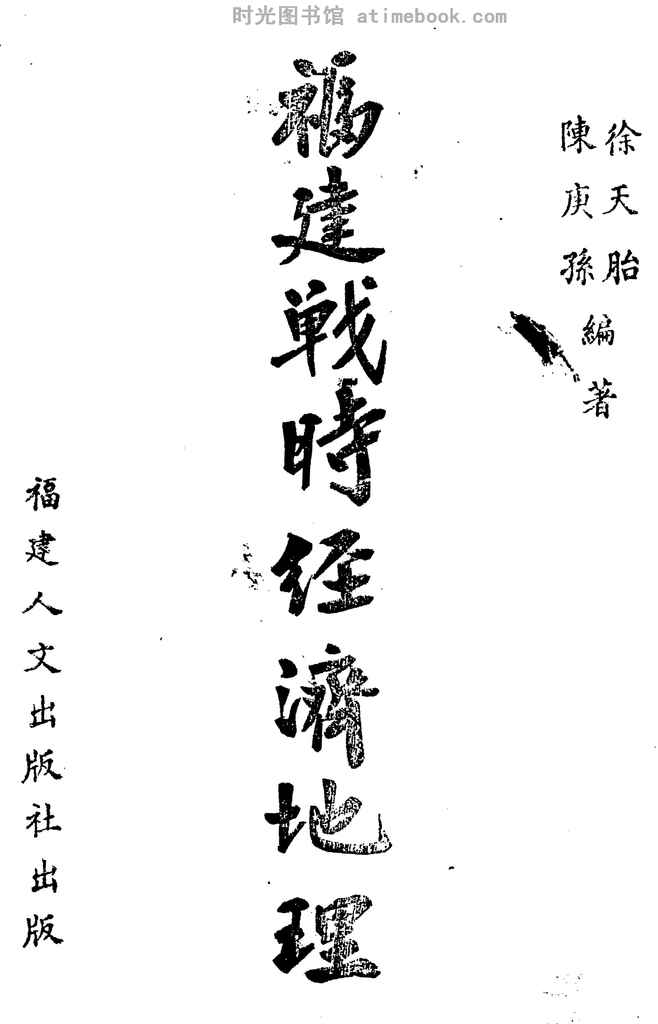 时光图书馆 atimebook.com
徐天胎
陳庚孫
編著
福建戰時經濟地理
福建人文出版社出版